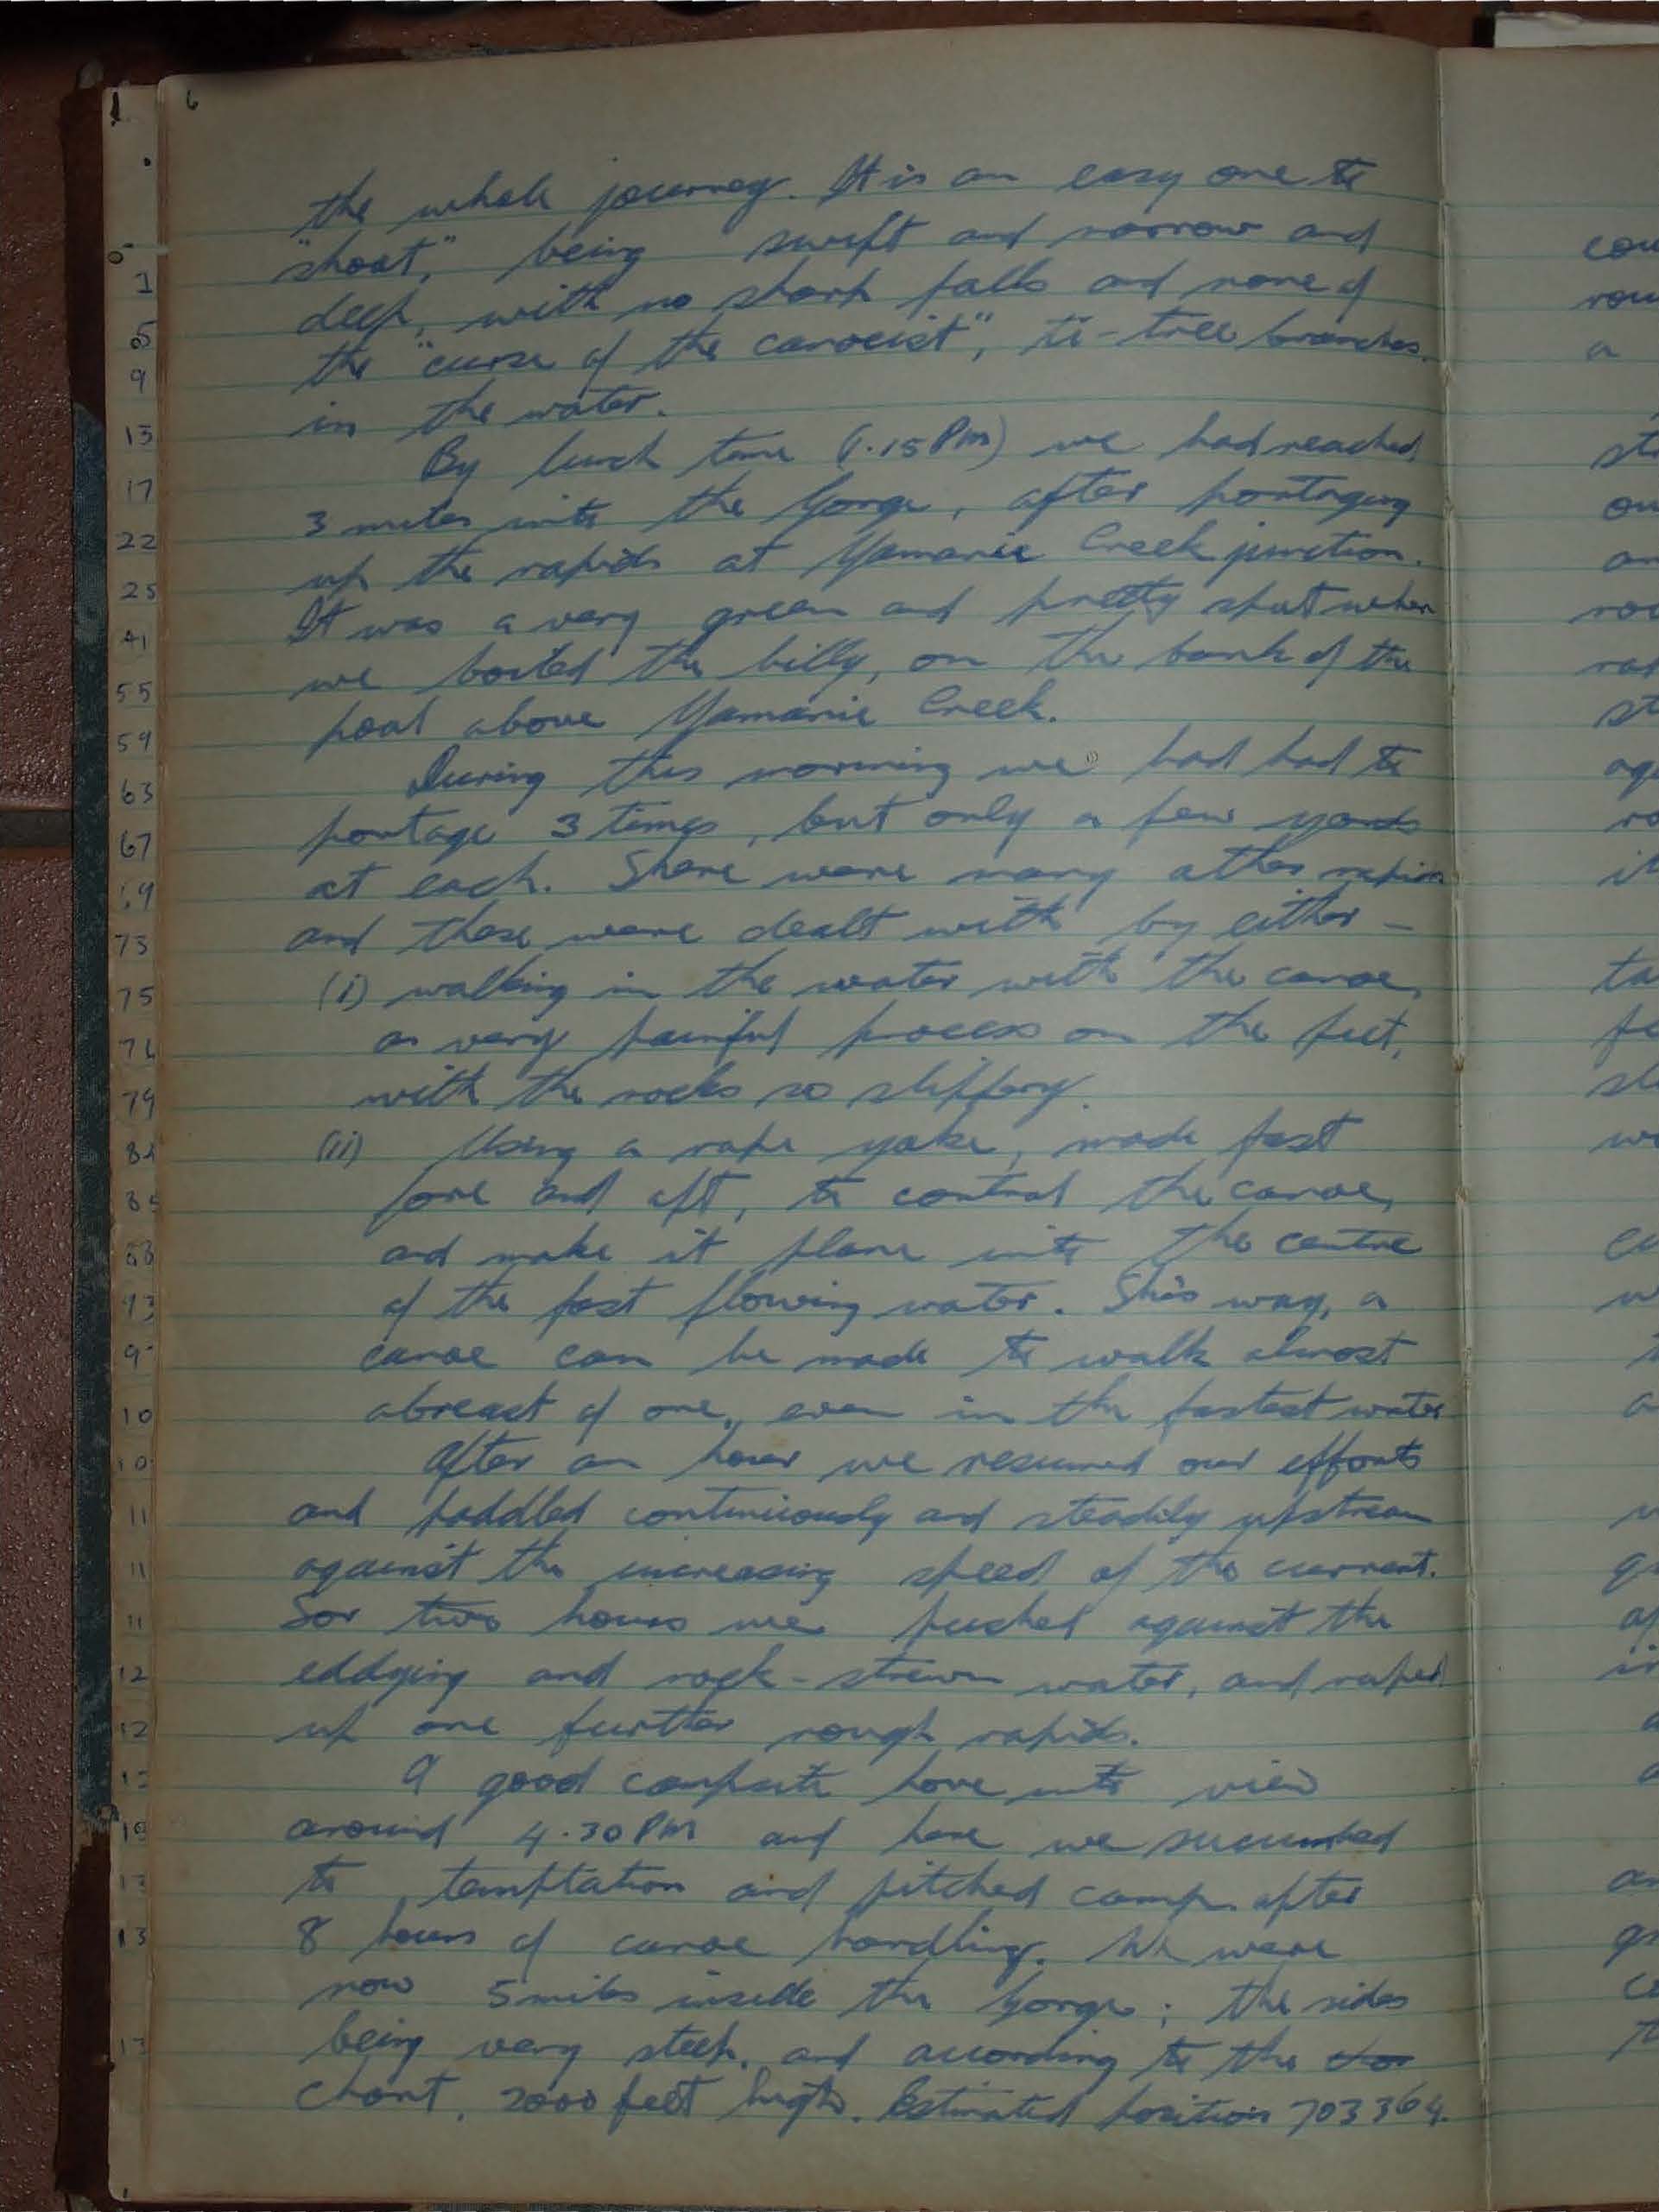 6
the whole journey. It is an easy one to
"shoot", being swift and narrow and
deep, with no sharp falls and none of
the "curse of the canoeist", ti-tree branches
in the water.
By lunch time (1.15 PM) we had reached
3 miles into the Gorge, after portaging
up the rapids at Yamanie Creek junction.
It was a very green and pretty spot where
we boiled the billy, on the bank of the
pool above Yamanie Creek.
During this morning we had had to
portage 3 times, but only a few yards
at each. There were many other rapids
and these were dealt with by either -
(i) walking in the water with the canoe,
a very painful process on the feet,
with the rocks so slippery.
(ii) Using a rope yoke, made fast
fore and aft, to control the canoe,
and make it plane into the centre
of the fast flowing water. This way, a
canoe can be made to walk almost
abreast of one, even in the fastest water
After an hour we resumed our efforts
and paddled continuously and steadily upstream
against the increasing speed of the current.
For two hours we pushed against the
eddying and rock-strewn water, and roped
up one further rough rapids.
A good campsite hove into view
around 4.30 PM and here we succumbed
to temptation and pitched camp after
8 hours of canoe handling. We were
now 5 miles inside the Gorge; the sides
being very steep, and according to the
chart, 2000 feet high. Estimated position 703364.